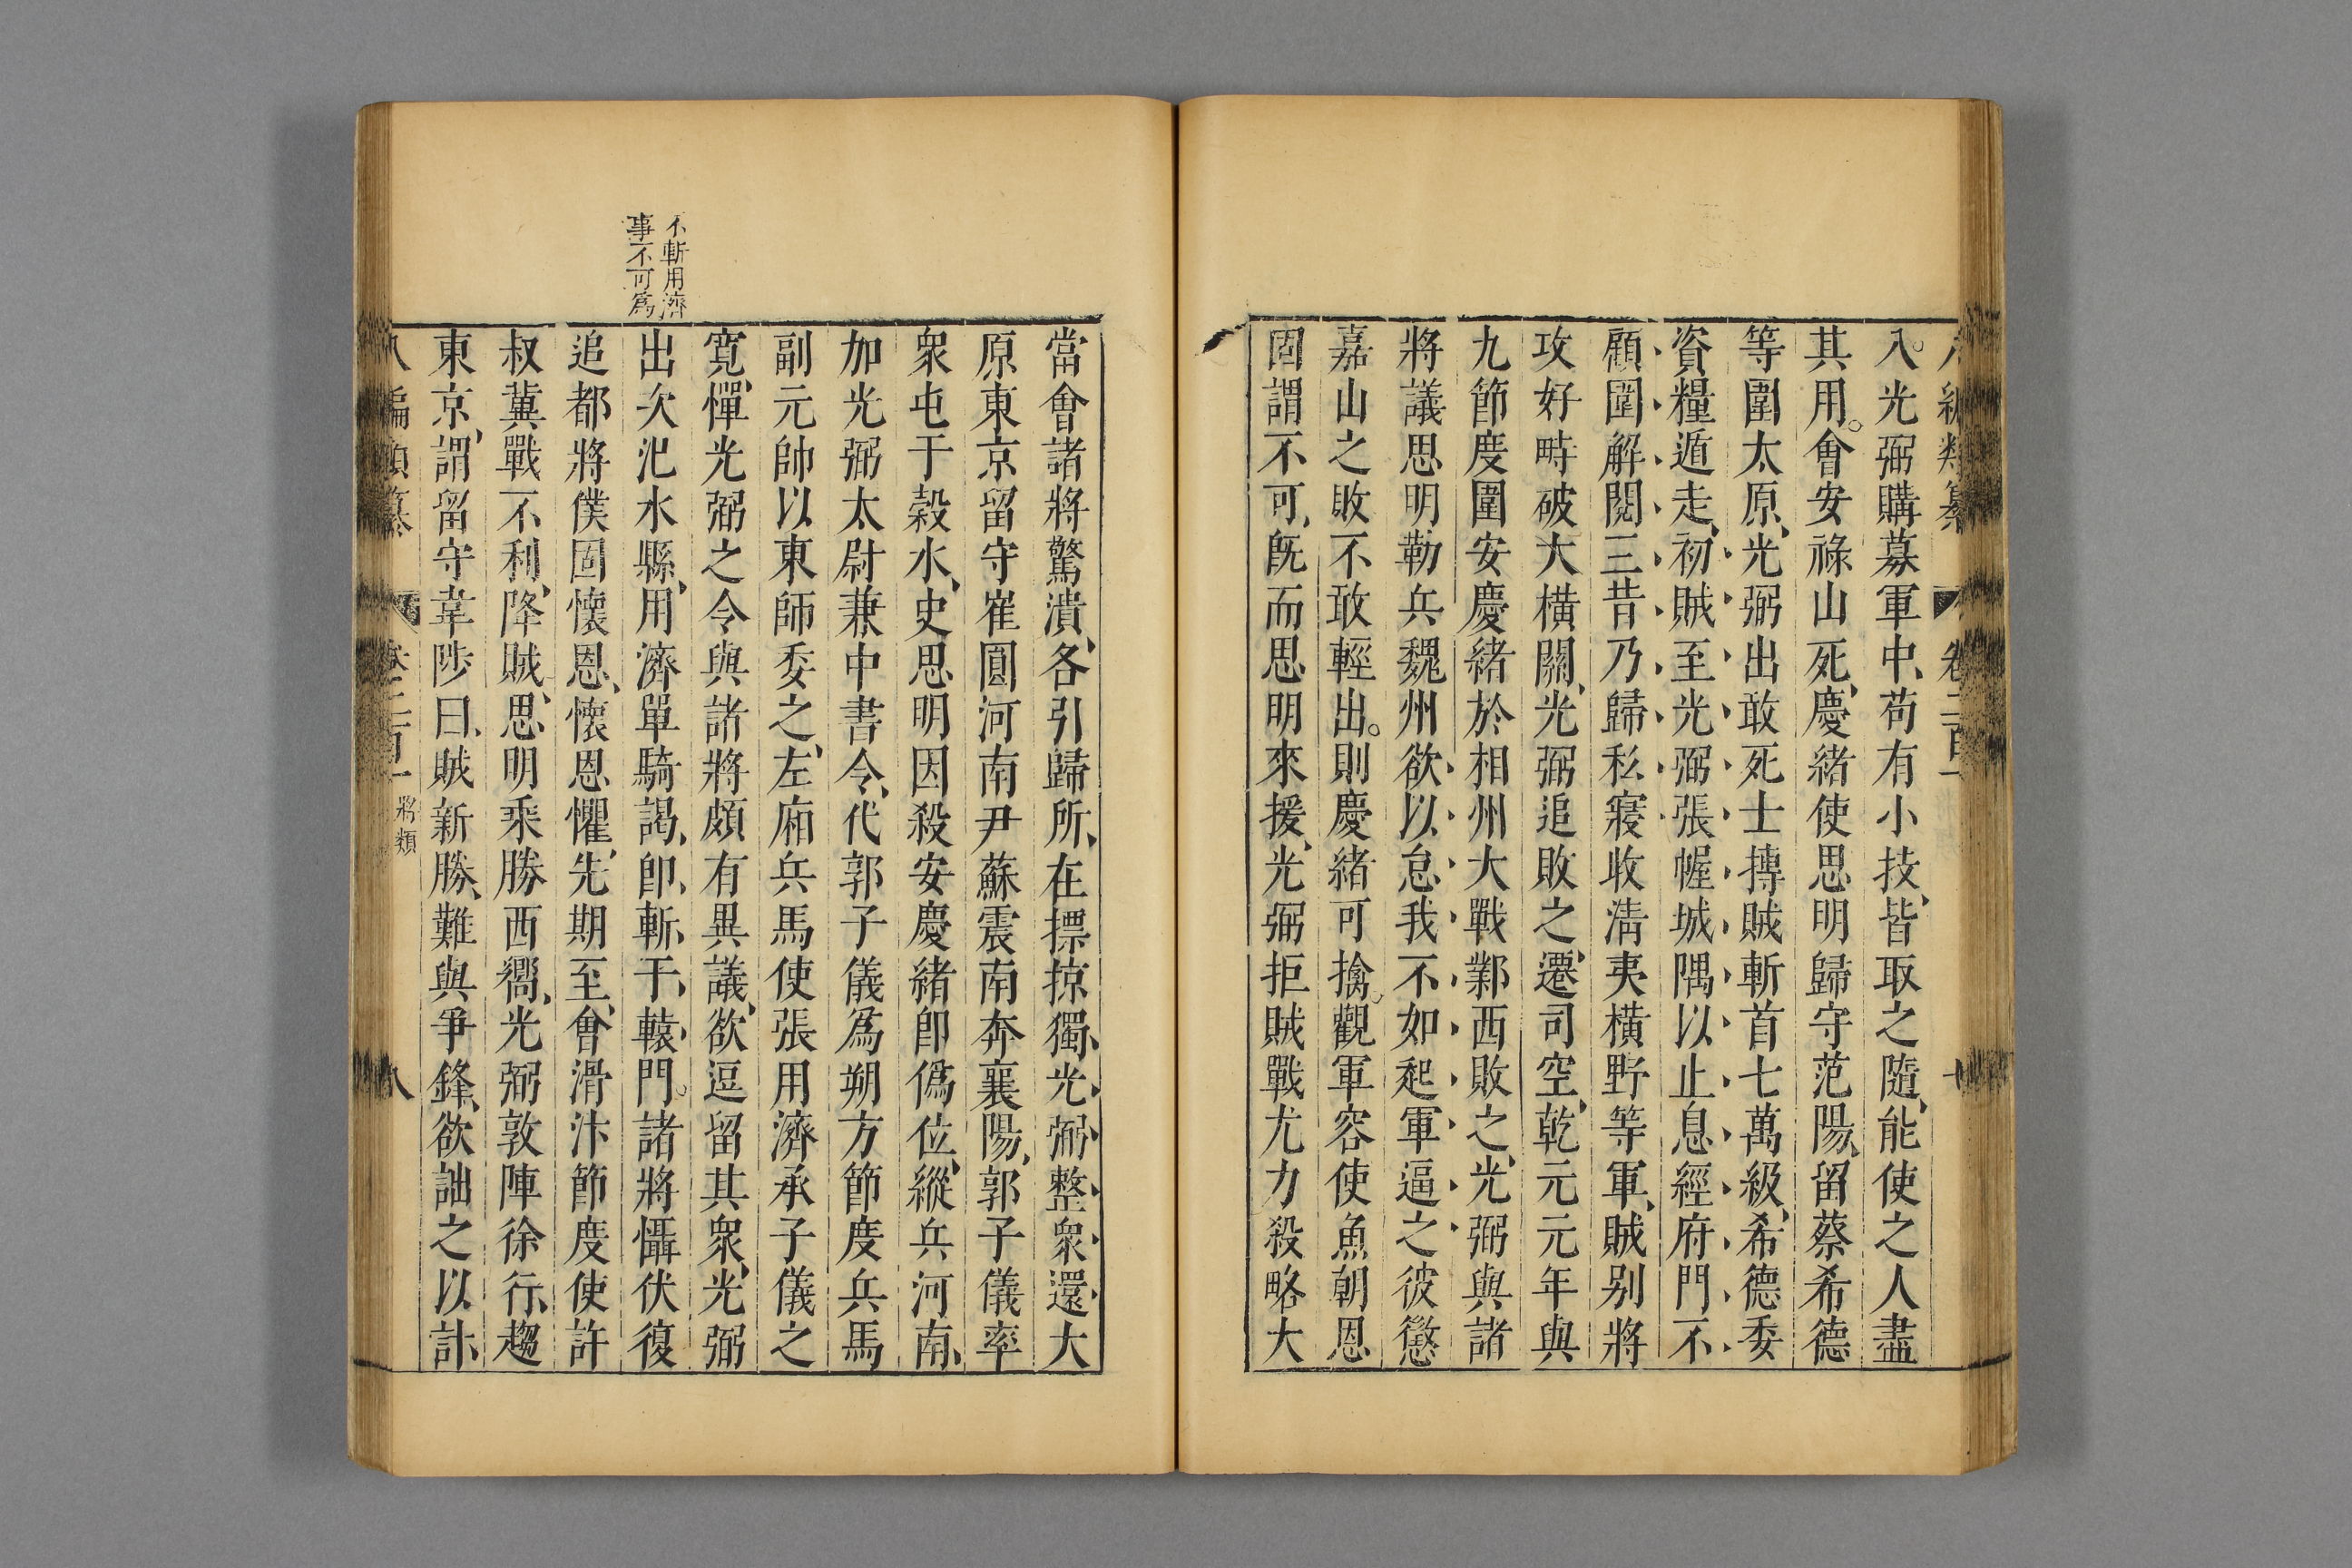 入光弼購募軍中苟有小技皆取之隨能使之人盡
其用會安祿山死慶緒使思明歸守范陽留蔡希德
等圍太原光弼出敢死士摶賊斬首七萬級希德委
資糧遁走初賊至光弼張幄城隅以止息經府門不
顧圍解閱三昔乃歸私寢收淸夷橫野等軍賊别將
攻好畤破大橫關光弼追敗之遷司空乾元元年與
九節度圍安慶緒於相州大戰鄴西敗之光弼與諸
將議思明勒兵魏州欲以怠我不如起軍逼之彼懲
嘉山之敗不敢輕出則慶緒可擒觀軍容使魚朝恩
固謂不可旣而思明來援光弼拒賊戰尤力殺略大
當會諸將驚潰各引歸所在摽掠獨光弼整衆還大
原東京留守崔圓河南尹蘇震南奔襄陽郭子儀率
衆屯于穀水史思明因殺安慶緒卽僞位縱兵河南
加光弼太尉兼中書令代郭子儀爲朔方節度兵馬
副元帥以東師委之左廂兵馬使張用濟承子儀之
寬憚光弼之令與諸將頗有異議欲逗留其衆光弼
不斬用濟
事不可爲
出次汜水縣用濟單騎謁卽斬于轅門諸將懾伏復
追都將僕固懷恩懷恩懼先期至會滑汴節度使許
叔冀戰不利降賊思明乘勝西嚮光弼敦陣徐行趨
東京謂留守韋陟曰賊新勝難與爭鋒欲詘之以計
八編類纂 卷二百十 將類 八